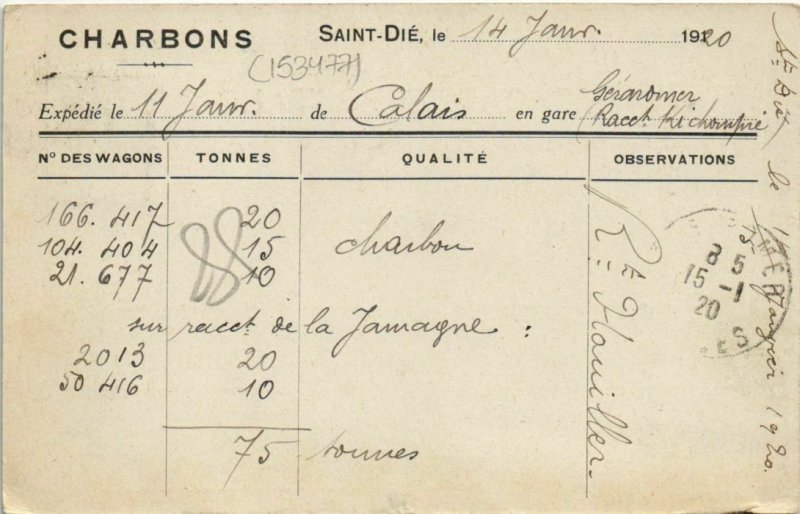 CHARBONS
SAINT-DIÉ, le 14 Janr. 1920
(153477)
Expédié le 11 Janr. de Calais en gare Gérardmer
(Racct. Kichompré)
No DES WAGONS TONNES QUALITÉ OBSERVATIONS
166.417 20
104.404 15 charbon
21.677 10
88
sur racct. de la Jamagne :
2013 20
50 416 10
75 tonnes
Rt. Houiller.
St Dié le 15 Janvier 1920.
8 5
15 -1
20